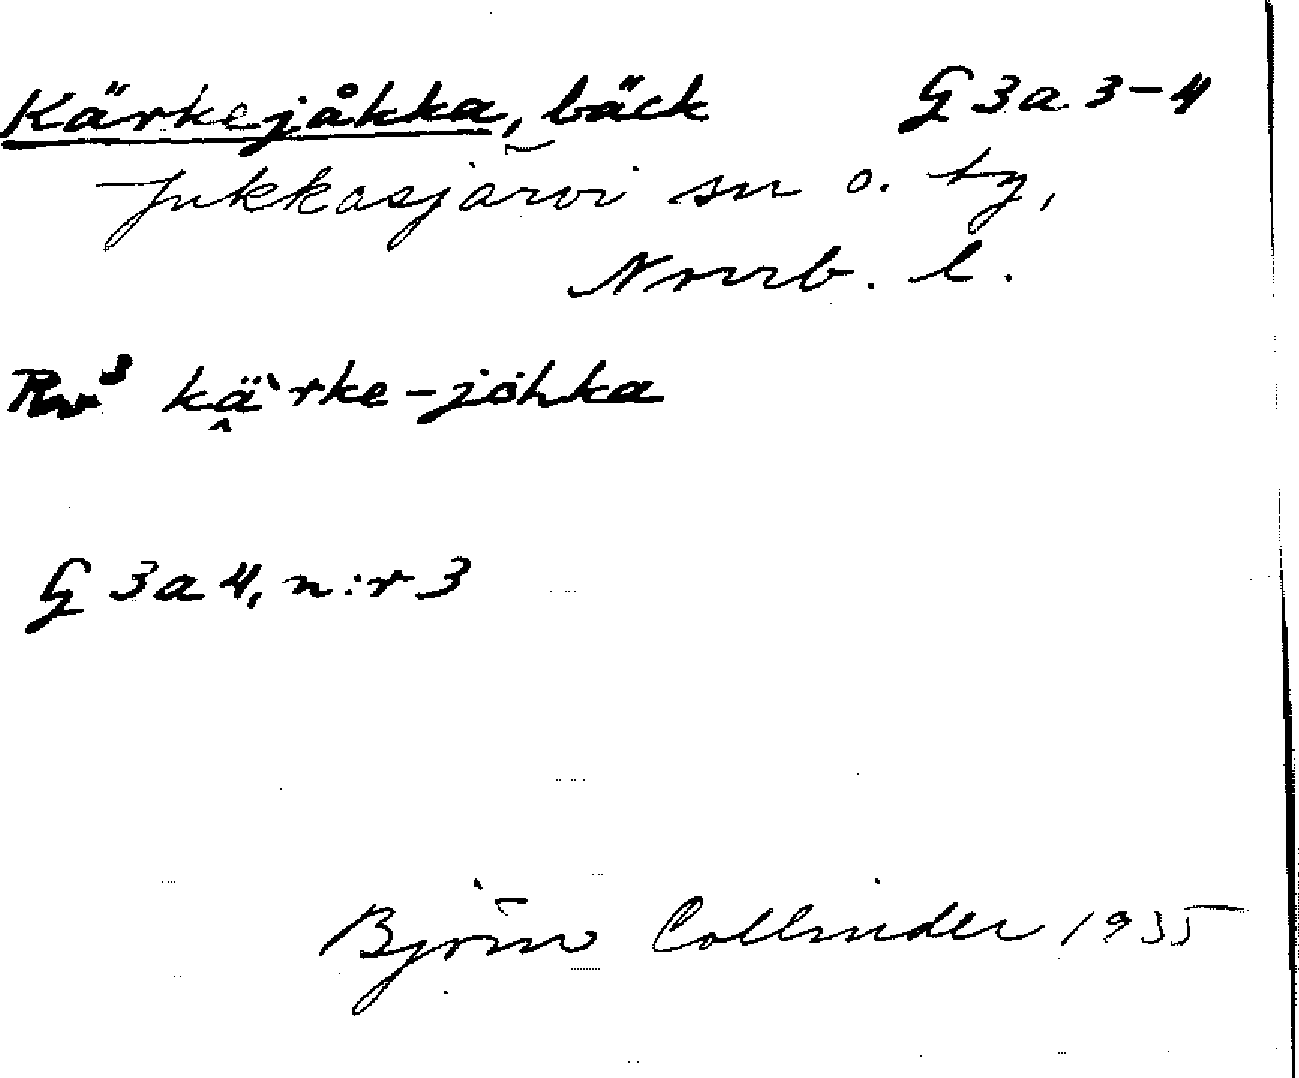 Kärkejåkka, bäck G 3a 3-4
Jukkasjärvi sn o. tg,
Norrb. l.
kä̭̀rke-jöhka
G 3a 4, n:r 3
Björn Collinder 1935